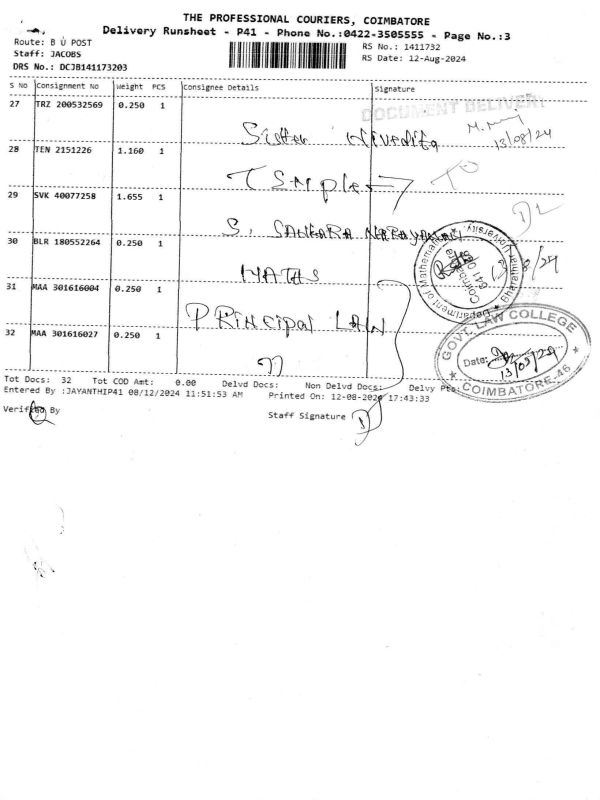 THE PROFESSIONAL COURIERS, COIMBATORE
Delivery Runsheet - P41 - Phone No.:0422-3505555 - Page No.:3
Route: B U POST
RS No.: 1411732
Staff: JACOBS
RS Date: 12-Aug-2024
DRS No.: DCJB141173203
S No Consignment No Weight PCS Consignee Details Signature
27 TRZ 200532569 0.250 1
DOCUMENT DELIVERY
Sister Nivedita
13/08/24
28 TEN 2151226 1.160 1
29 SVK 40077258 1.655 1
S. SANKARA NARAYANAN
30 BLR 180552264 0.250 1
MATHS
Department of Mathematics
Bharathiar University
31 MAA 301616004 0.250 1
PRINCIPAL LAW
GOVT. LAW COLLEGE
32 MAA 301616027 0.250 1
Date:
13/08/24
COIMBATORE-46
Tot Docs: 32 Tot COD Amt: 0.00 Delvd Docs: Non Delvd Docs: Delvy Pts:
Entered By :JAYANTHIP41 08/12/2024 11:51:53 AM Printed On: 12-08-2024 17:43:33
Verified By
Staff Signature